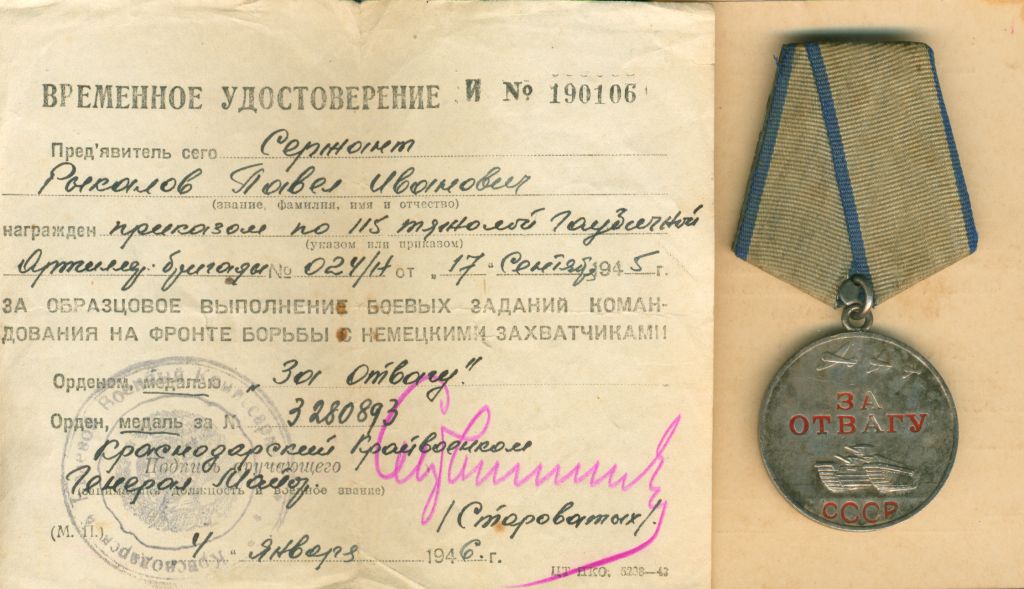 ВРЕМЕННОЕ УДОСТОВЕРЕНИЕ И № 190106
Пред'явитель сего Сержант
Рыкалов Павел Иванович
(звание, фамилия, имя и отчество)
награжден приказом по 115 тяжолой Гаубичной
(указом или приказом)
Артиллер. бригады № 024/Н от „17" Сентябр 1945 г.
ЗА ОБРАЗЦОВОЕ ВЫПОЛНЕНИЕ БОЕВЫХ ЗАДАНИЙ КОМАН-
ДОВАНИЯ НА ФРОНТЕ БОРЬБЫ С НЕМЕЦКИМИ ЗАХВАТЧИКАМИ
Орденом, медалью „За отвагу"
Орден, медаль за № 3280893
Краснодарский Крайвоенком
Подпись вручающего
Генерал Майор
(занимаемая должность и военное звание)
/Староватых/.
(М. П.) „4" января 1946 г.
ЦТ НКО. 5238—43
ЗА
ОТВАГУ
СССР